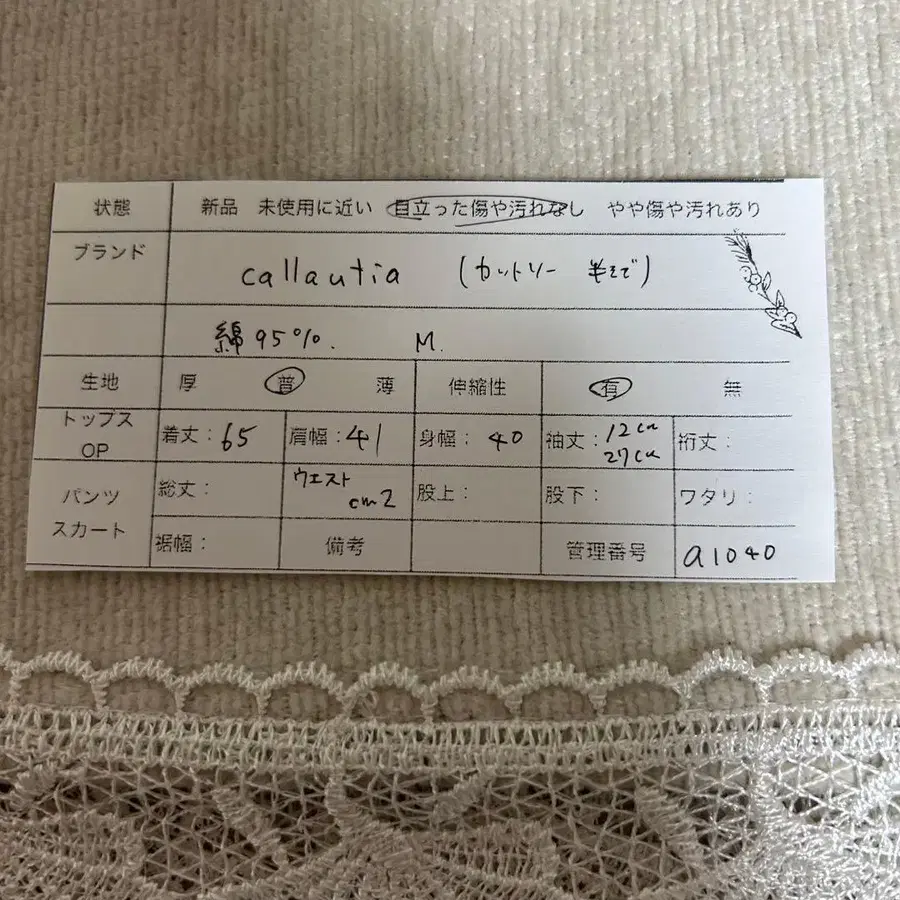 状態 新品 未使用に近い 目立った傷や汚れなし やや傷や汚れあり
ブランド callautia (カットソー 半そで)
綿95%. M.
生地 厚 普 薄 伸縮性 有 無
トップス OP 着丈:65 肩幅:41 身幅:40 袖丈:12cm 27cm 裄丈:
パンツ スカート 総丈: ウエスト cm2 股上: 股下: ワタリ:
裾幅: 備考 管理番号 a1040